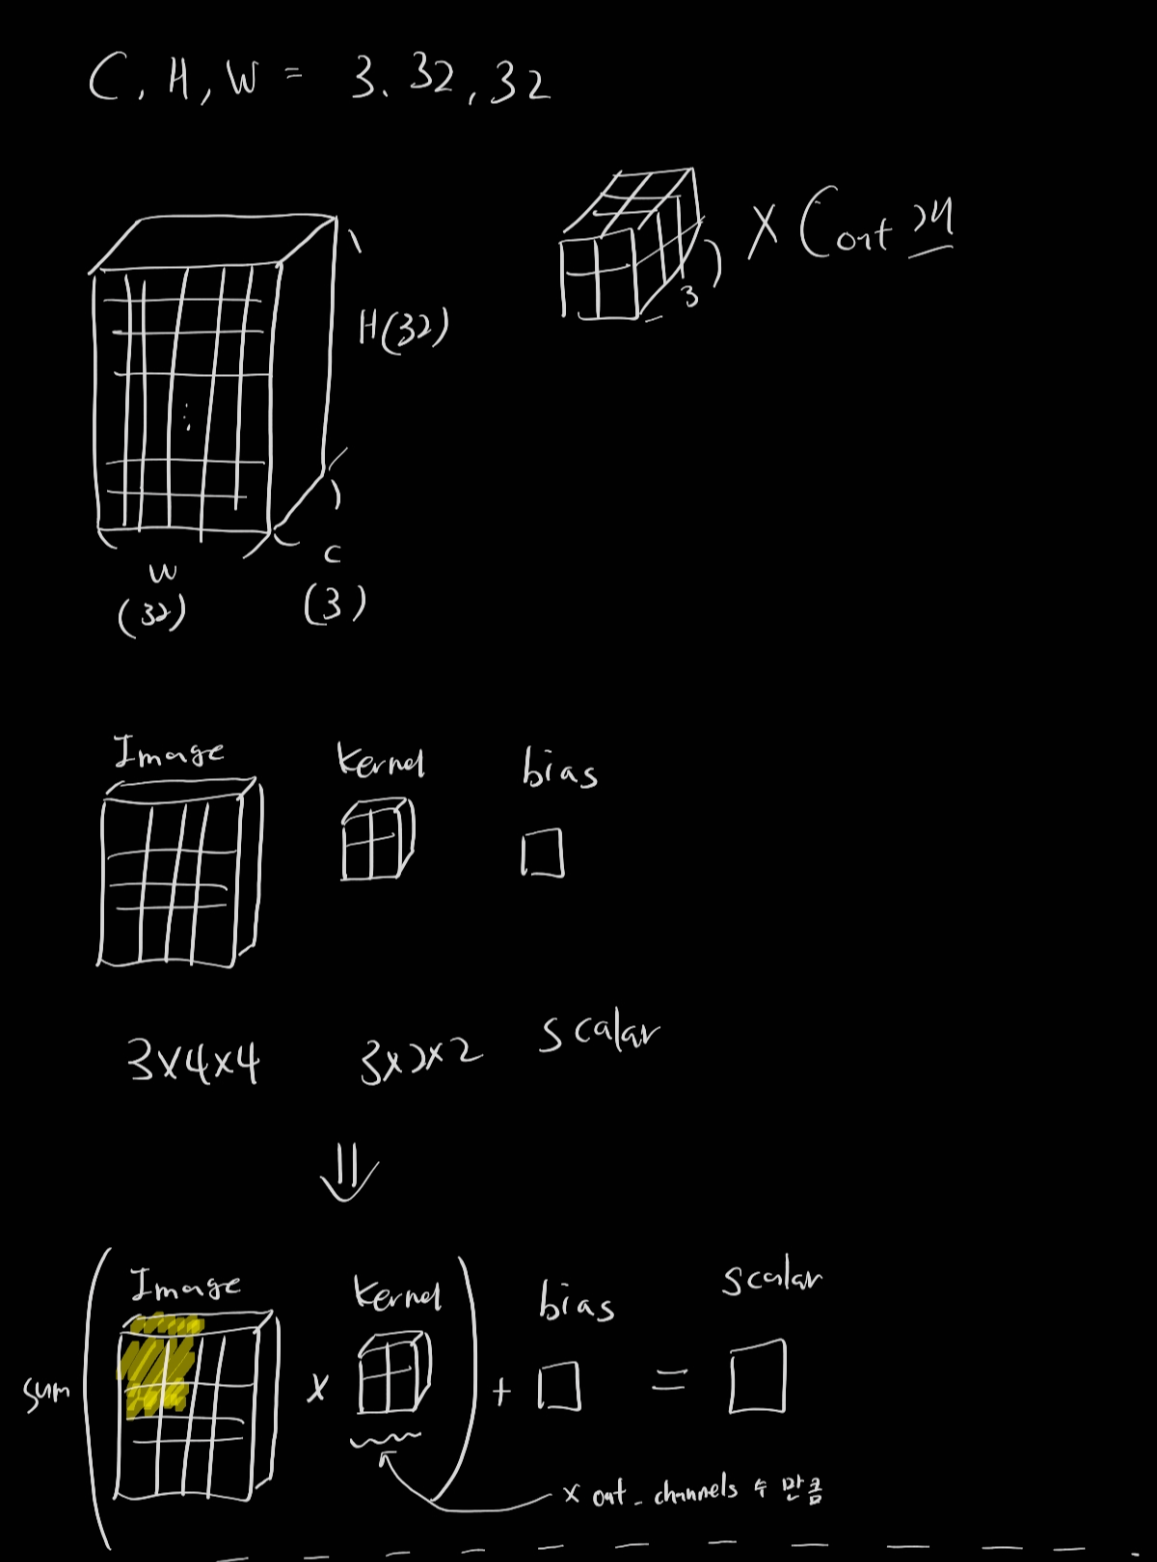 C, H, W = 3. 32, 32
3
X Cout 개
H(32)
W
(32)
C
(3)
Image Kernel bias
3x4x4 3x2x2 scalar
⇓
Image Kernel bias scalar
sum ( x ) + =
x out_channels 수 만큼